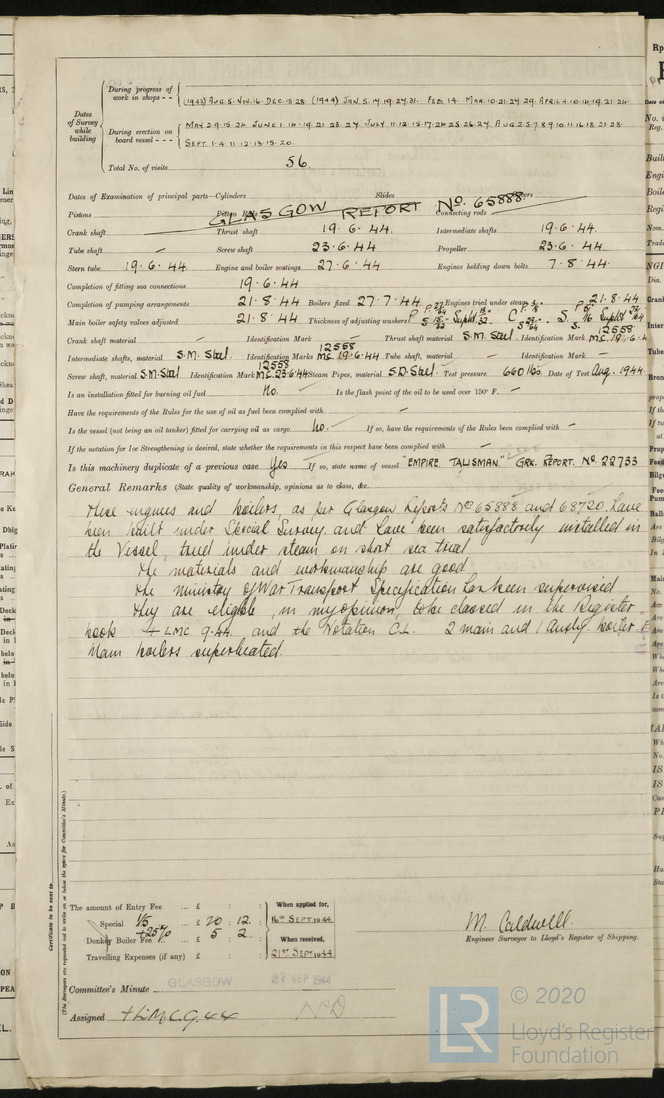 During progress of work in shops - -
(1943) AUG. 5. NOV. 16. DEC. 15. 28. (1944) JAN. 5. 17. 19. 27. 31. FEB. 14. MAR. 10. 21. 27. 29. APRIL 4. 10. 14. 19. 21. 24.
Dates of Survey while building
During erection on board vessel - - -
MAY 2. 9. 15. 24. JUNE 1. 14. 19. 21. 23. 27. JULY 11. 12. 15. 17. 24. 25. 26. 27. AUG 2. 5. 7. 8. 9. 10. 11. 16. 18. 21. 28.
SEPT. 1. 4. 11. 12. 13. 15. 20.
Total No. of visits 56.
Dates of Examination of principal parts—Cylinders Slides
GLASGOW REPORT No. 65888
Pistons Piston Rods Connecting rods
Crank shaft Thrust shaft 19. 6. 44. Intermediate shafts 19. 6. 44.
Tube shaft — Screw shaft 23. 6. 44 Propeller 23. 6. 44.
Stern tube 19. 6. 44. Engine and boiler seatings 27. 6. 44 Engines holding down bolts 7. 8. 44.
Completion of fitting sea connections 19. 6. 44
Completion of pumping arrangements 21. 8. 44 Boilers fixed 27. 7. 44 Engines tried under steam 21. 8. 44
Main boiler safety valves adjusted 21. 8. 44 Thickness of adjusting washers
Crank shaft material — Identification Mark — Thrust shaft material S.M. Steel. Identification Mark 12558 MC. 19. 6. 4
Intermediate shafts, material S.M. Steel. Identification Marks 12558 MC. 19. 6. 44 Tube shaft, material — Identification Mark —
Screw shaft, material S.M. Steel Identification Mark 12558 MC. 23. 6. 44 Steam Pipes, material S.D. Steel. Test pressure 660 lbs. Date of Test Aug. 1944.
Is an installation fitted for burning oil fuel No. Is the flash point of the oil to be used over 150° F. —
Have the requirements of the Rules for the use of oil as fuel been complied with —
Is the vessel (not being an oil tanker) fitted for carrying oil as cargo No. — If so, have the requirements of the Rules been complied with —
If the notation for Ice Strengthening is desired, state whether the requirements in this respect have been complied with —
Is this machinery duplicate of a previous case Yes If so, state name of vessel "EMPIRE TALISMAN" GRK. REPORT. No. 22733
General Remarks (State quality of workmanship, opinions as to class, &c.
These engines and boilers, as per Glasgow Reports No 65888 and 68720. have
been built under Special Survey and have been satisfactorily installed in
the Vessel, tried under steam on short sea trial
The materials and workmanship are good
The ministry of War Transport Specification has been supervised
They are eligible, in my opinion, to be classed in the Register
book + LMC 9.44. and the notation C.L. 2 main and 1 Auxly. boiler.
Main boilers superheated.
Certificate to be sent to
(The Surveyors are requested not to write on or below the space for Committee's Minute.)
The amount of Entry Fee ... £ : :
Special 1/5 ... £ 20 : 12.
+25%
Donkey Boiler Fee ... £ 5 : 2.
Travelling Expenses (if any) £ : :
When applied for,
16th SEPT. 1944.
When received,
21st SEPT. 1944
M. Caldwell.
Engineer Surveyor to Lloyd's Register of Shipping.
Committee's Minute GLASGOW 27 SEP 1944
Assigned + LMC 9.44
LR © 2020
Lloyd's Register
Foundation